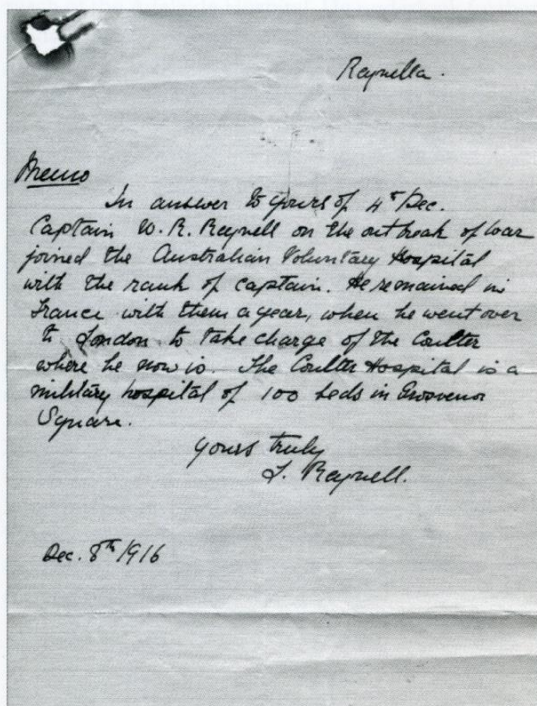 Reynella.
Memo
In answer to yours of 4th Dec.
Captain W. R. Reynell on the outbreak of war
joined the Australian Voluntary Hospital
with the rank of captain. He remained in
France with them a year, when he went over
to London to take charge of the Coulter
where he now is. The Coulter Hospital is a
military hospital of 100 beds in Grosvenor
Square.
Yours truly
Reynell.
Dec. 8th/1916